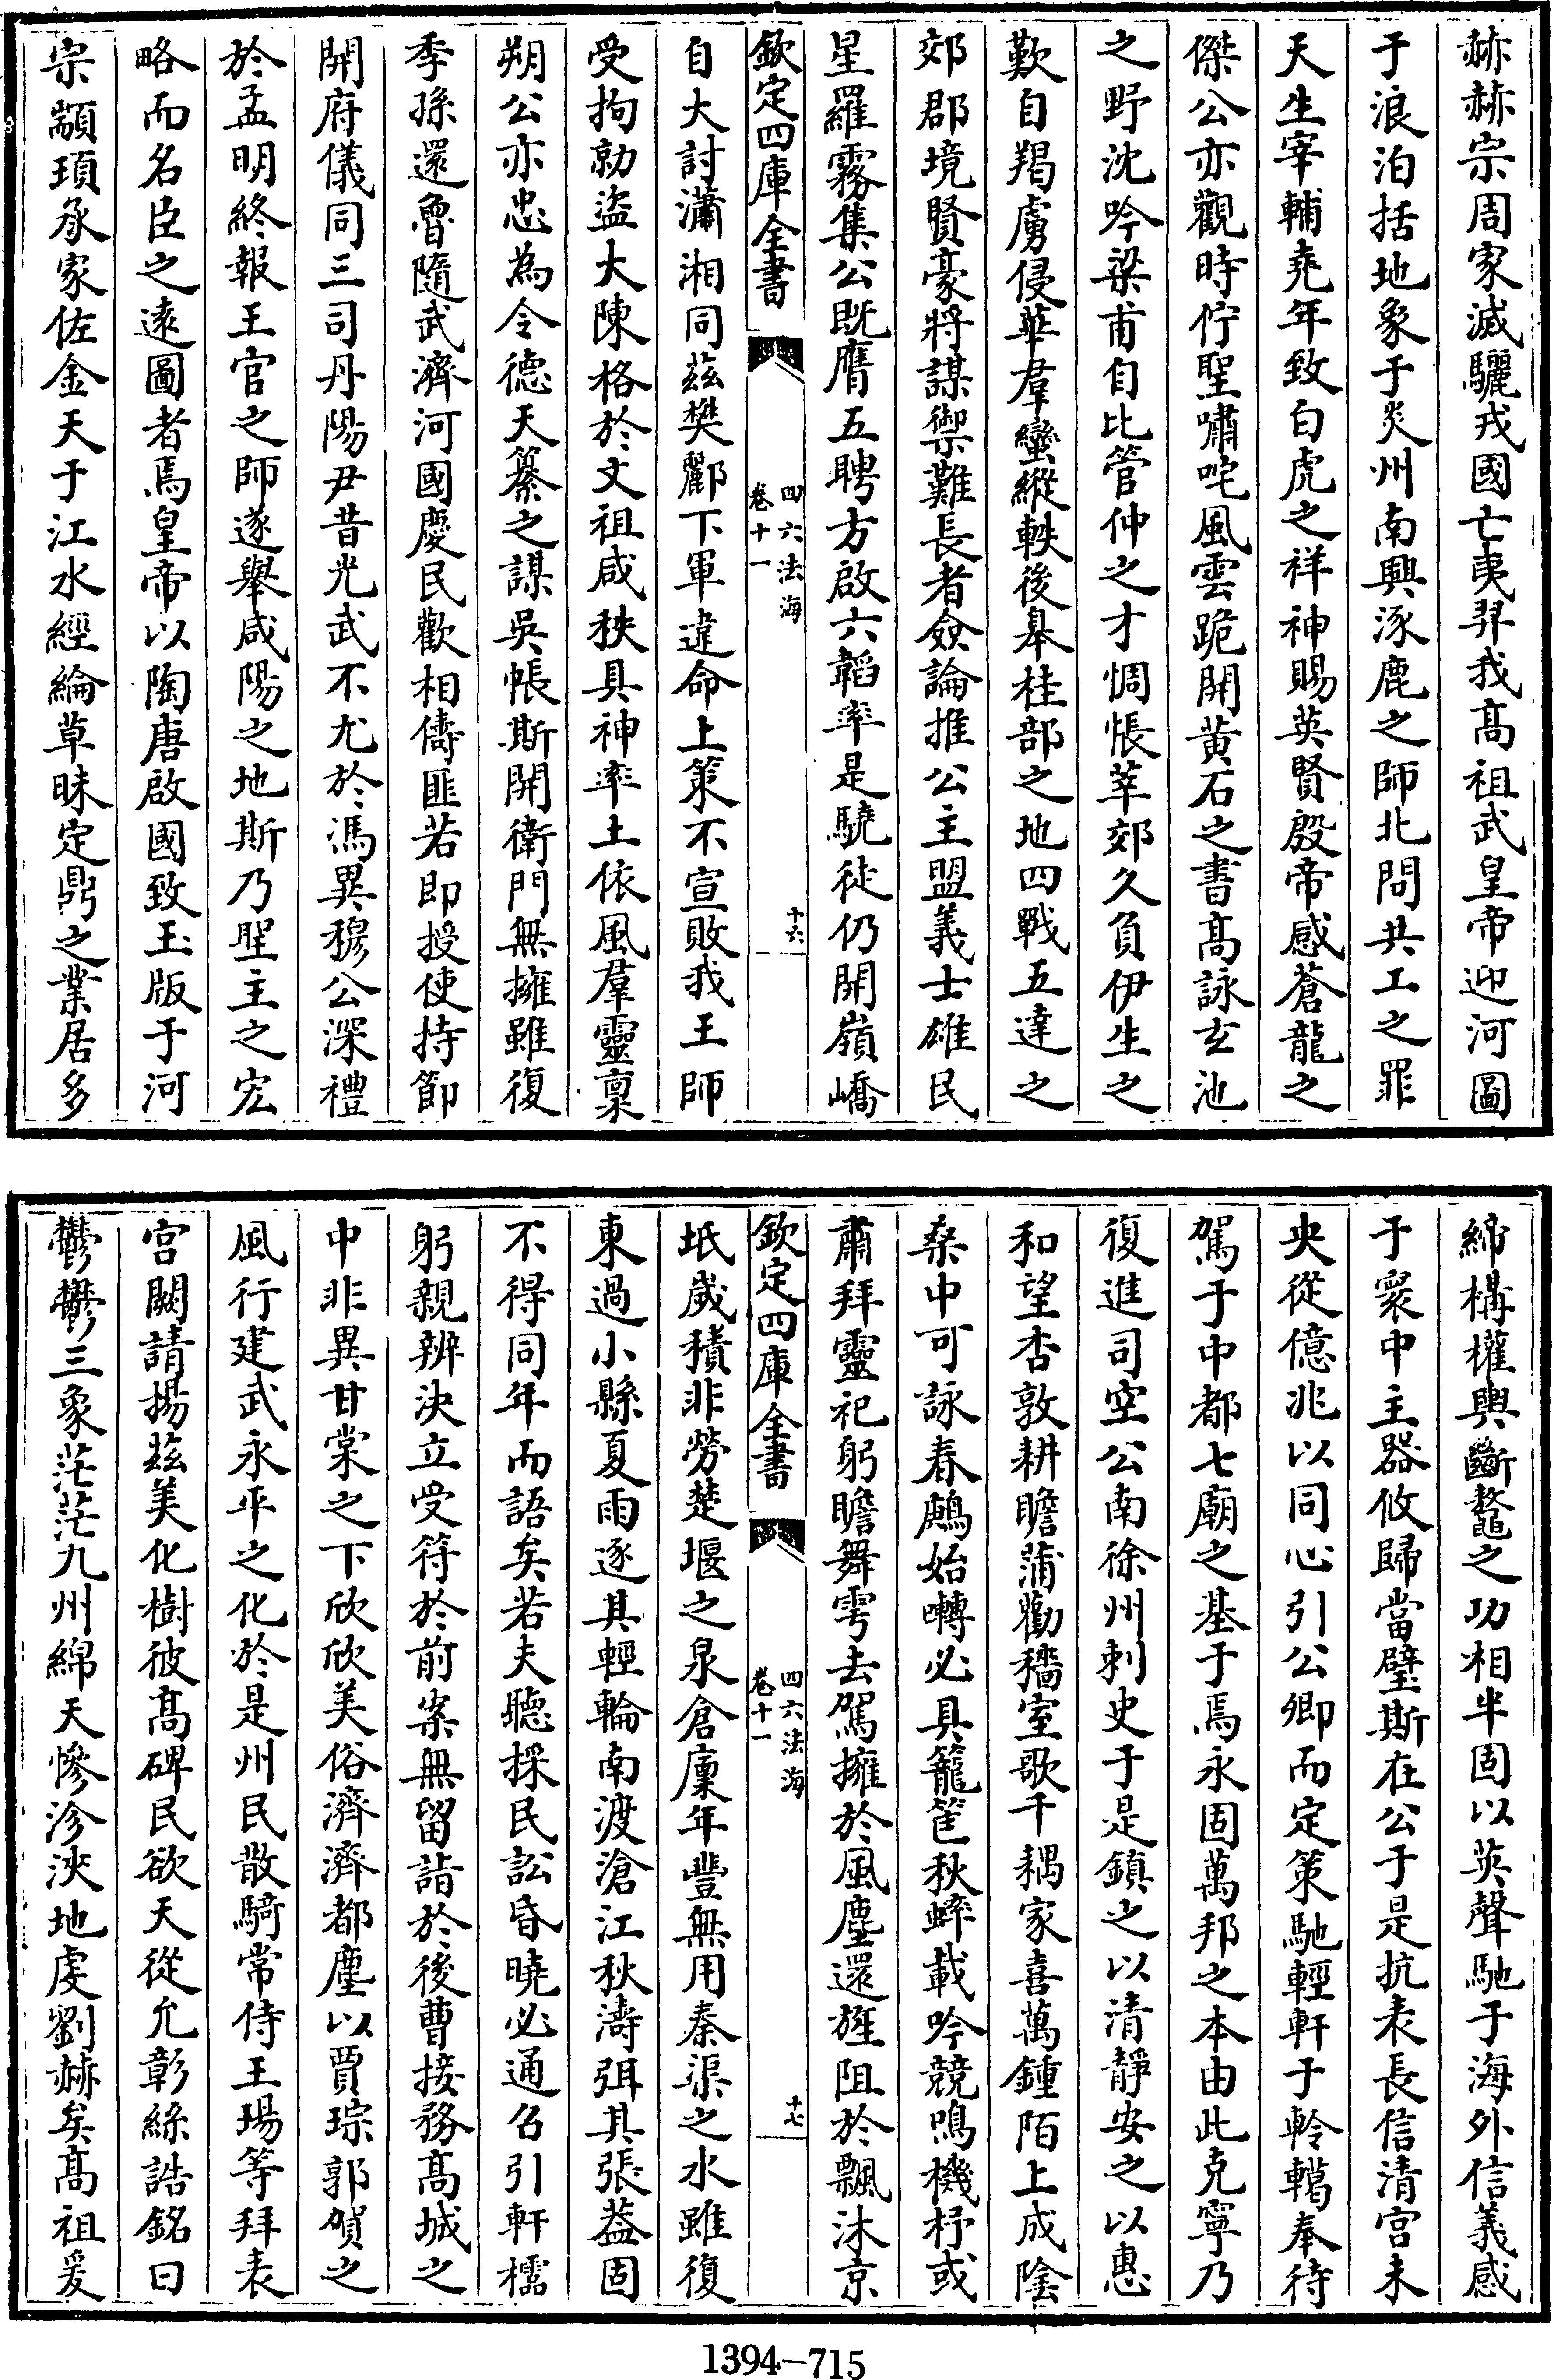 赫赫宗周家滅驪戎國亡夷羿我髙祖武皇帝迎河圖
于浪泊括地象于炎州南興涿鹿之師北問共工之罪
天生宰輔堯年致白虎之祥神賜英賢殷帝感蒼龍之
傑公亦觀時佇聖嘯咤風雲跪開黄石之書髙詠玄池
之野沈吟梁甫自比管仲之才惆悵莘郊久負伊生之
歎自羯虜侵華羣蠻縱軼後臯桂部之地四戰五達之
郊郡境賢豪將謀禦難長者僉論推公主盟義士雄民
星羅霧集公既膺五聘方啟六韜率是驍徒仍開嶺嶠
欽定四庫全書
四六法海
卷十一
十六
自大討瀟湘同茲樊酈下軍違命上策不宣敗我王師
受拘勍盜大陳格於文祖咸秩具神率土依風羣靈禀
朔公亦忠為令德天纂之謀吳帳斯開衛門無擁雖復
季孫還魯隨武濟河國慶民歡相儔匪若即授使持節
開府儀同三司丹陽尹昔光武不尤於馮異穆公深禮
於孟明終報王官之師遂舉咸陽之地斯乃聖主之宏
略而名臣之遠圖者焉皇帝以陶唐啟國致玉版于河
宗顓頊承家佐金天于江水經綸草昧定鼎之業居多
締構權輿斷鼇之功相半固以英聲馳于海外信義感
于衆中主器攸歸當璧斯在公于是抗表長信清宮未
央從億兆以同心引公卿而定策馳輕軒于軨轕奉待
駕于中都七廟之基于焉永固萬邦之本由此克寧乃
復進司空公南徐州刺史于是鎮之以清靜安之以惠
和望杏敦耕瞻蒲勸穡室歌千耦家喜萬鍾陌上成隂
桑中可詠春鷓始囀必具籠筐秋蟀載吟競鳴機杼或
肅拜靈祀躬瞻舞雩去駕擁於風塵還旌阻於飄沐京
欽定四庫全書
四六法海
卷十一
十七
坻歲積非勞楚堰之泉倉廩年豐無用秦渠之水雖復
東過小縣夏雨逐其輕輪南渡滄江秋濤弭其張葢固
不得同年而語矣若夫聽採民訟昏曉必通名引軒檽
躬親辨決立受符於前案無留諳於後曹接務髙城之
中非異甘棠之下欣欣美俗濟濟都塵以賈琮郭賀之
風行建武永平之化於是州民散騎常侍王瑒等拜表
宮闕請揚茲美化樹彼髙碑民欲天從允彰絲誥銘曰
鬱鬱三象茫茫九州綿天慘沴浹地虔劉赫矣髙祖爰
1394—715